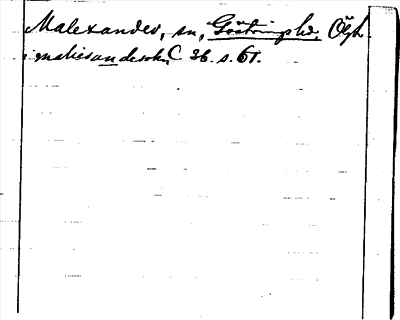 Malexander, sn, Göstrings hd, Ögh.
i malicsandeschn C 36. s. 61.